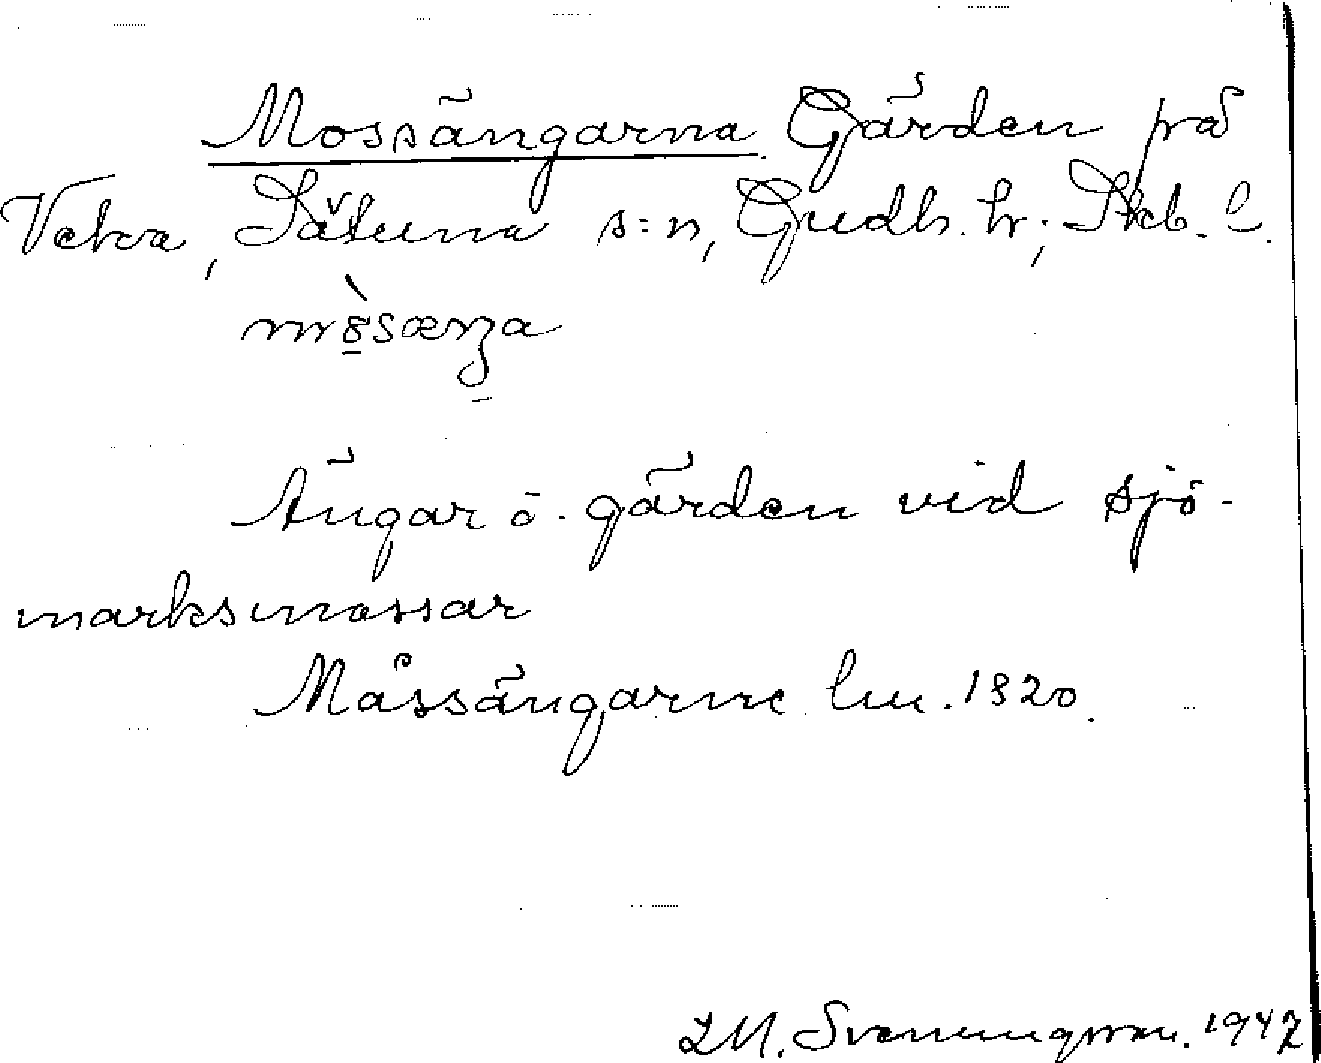 Mossängarna Gärden på
Veka, Sätuna s:n, Gudh. hr; Skb. l.
Ängar o. gärden vid sjö-
marksmossar
Måssängarne lm. 1820.
L M. Svenungsson. 1947